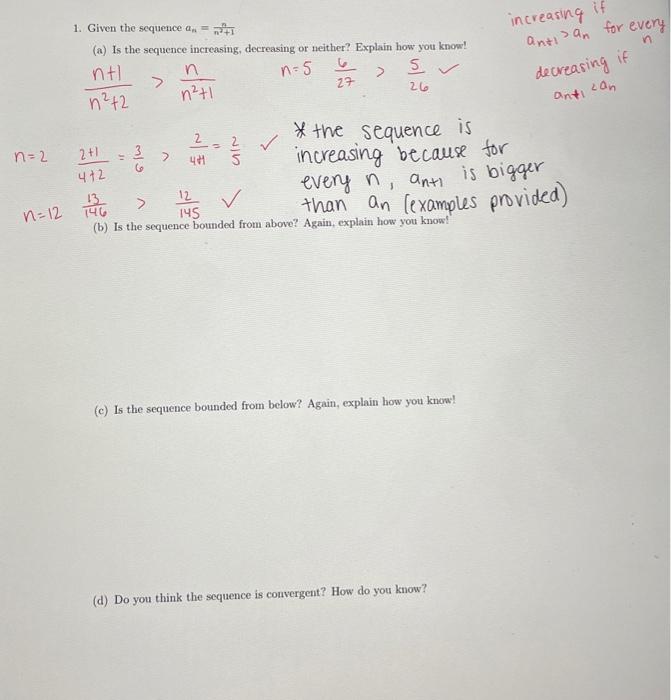 increasing if
1. Given the sequence aₙ = n/(n²+1)
aₙ₊₁ > aₙ for every n
(a) Is the sequence increasing, decreasing or neither? Explain how you know!
decreasing if
aₙ₊₁ < aₙ
(n+1)/(n²+2) > n/(n²+1)
n=5 6/27 > 5/26 ✓
n=2 (2+1)/(4+2) = 3/6 > 2/(4+1) = 2/5 ✓
n=12 13/146 > 12/145 ✓
* the sequence is
increasing because for
every n, aₙ₊₁ is bigger
than an (examples provided)
(b) Is the sequence bounded from above? Again, explain how you know!
(c) Is the sequence bounded from below? Again, explain how you know!
(d) Do you think the sequence is convergent? How do you know?